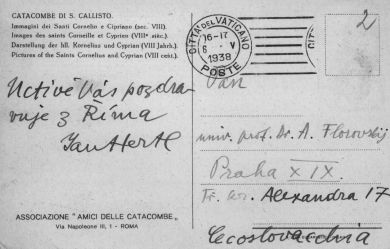 CATACOMBE DI S. CALLISTO.
Immagini dei Santi Cornelio e Cipriano (sec. VIII).
Images des saints Corneille et Cyprien (VIIIe sièc.).
Darstellung der hll. Kornelius und Cyprian (VIII Jahrh.).
Pictures of the saints Cornelius and Cyprian (VIII cent.).
Uctivě Vás pozdra-
vuje z Říma
Jan Hertl
ASSOCIAZIONE "AMICI DELLE CATACOMBE"
Via Napoleone III, 1 - ROMA
CITTÀ DEL VATICANO
16-17
6 · V
1938
POSTE
CITTÀ
2
Pan
univ. prof. Dr. A. Florovskij
Praha XIX.
Alexandra 17
Cecoslovacchia